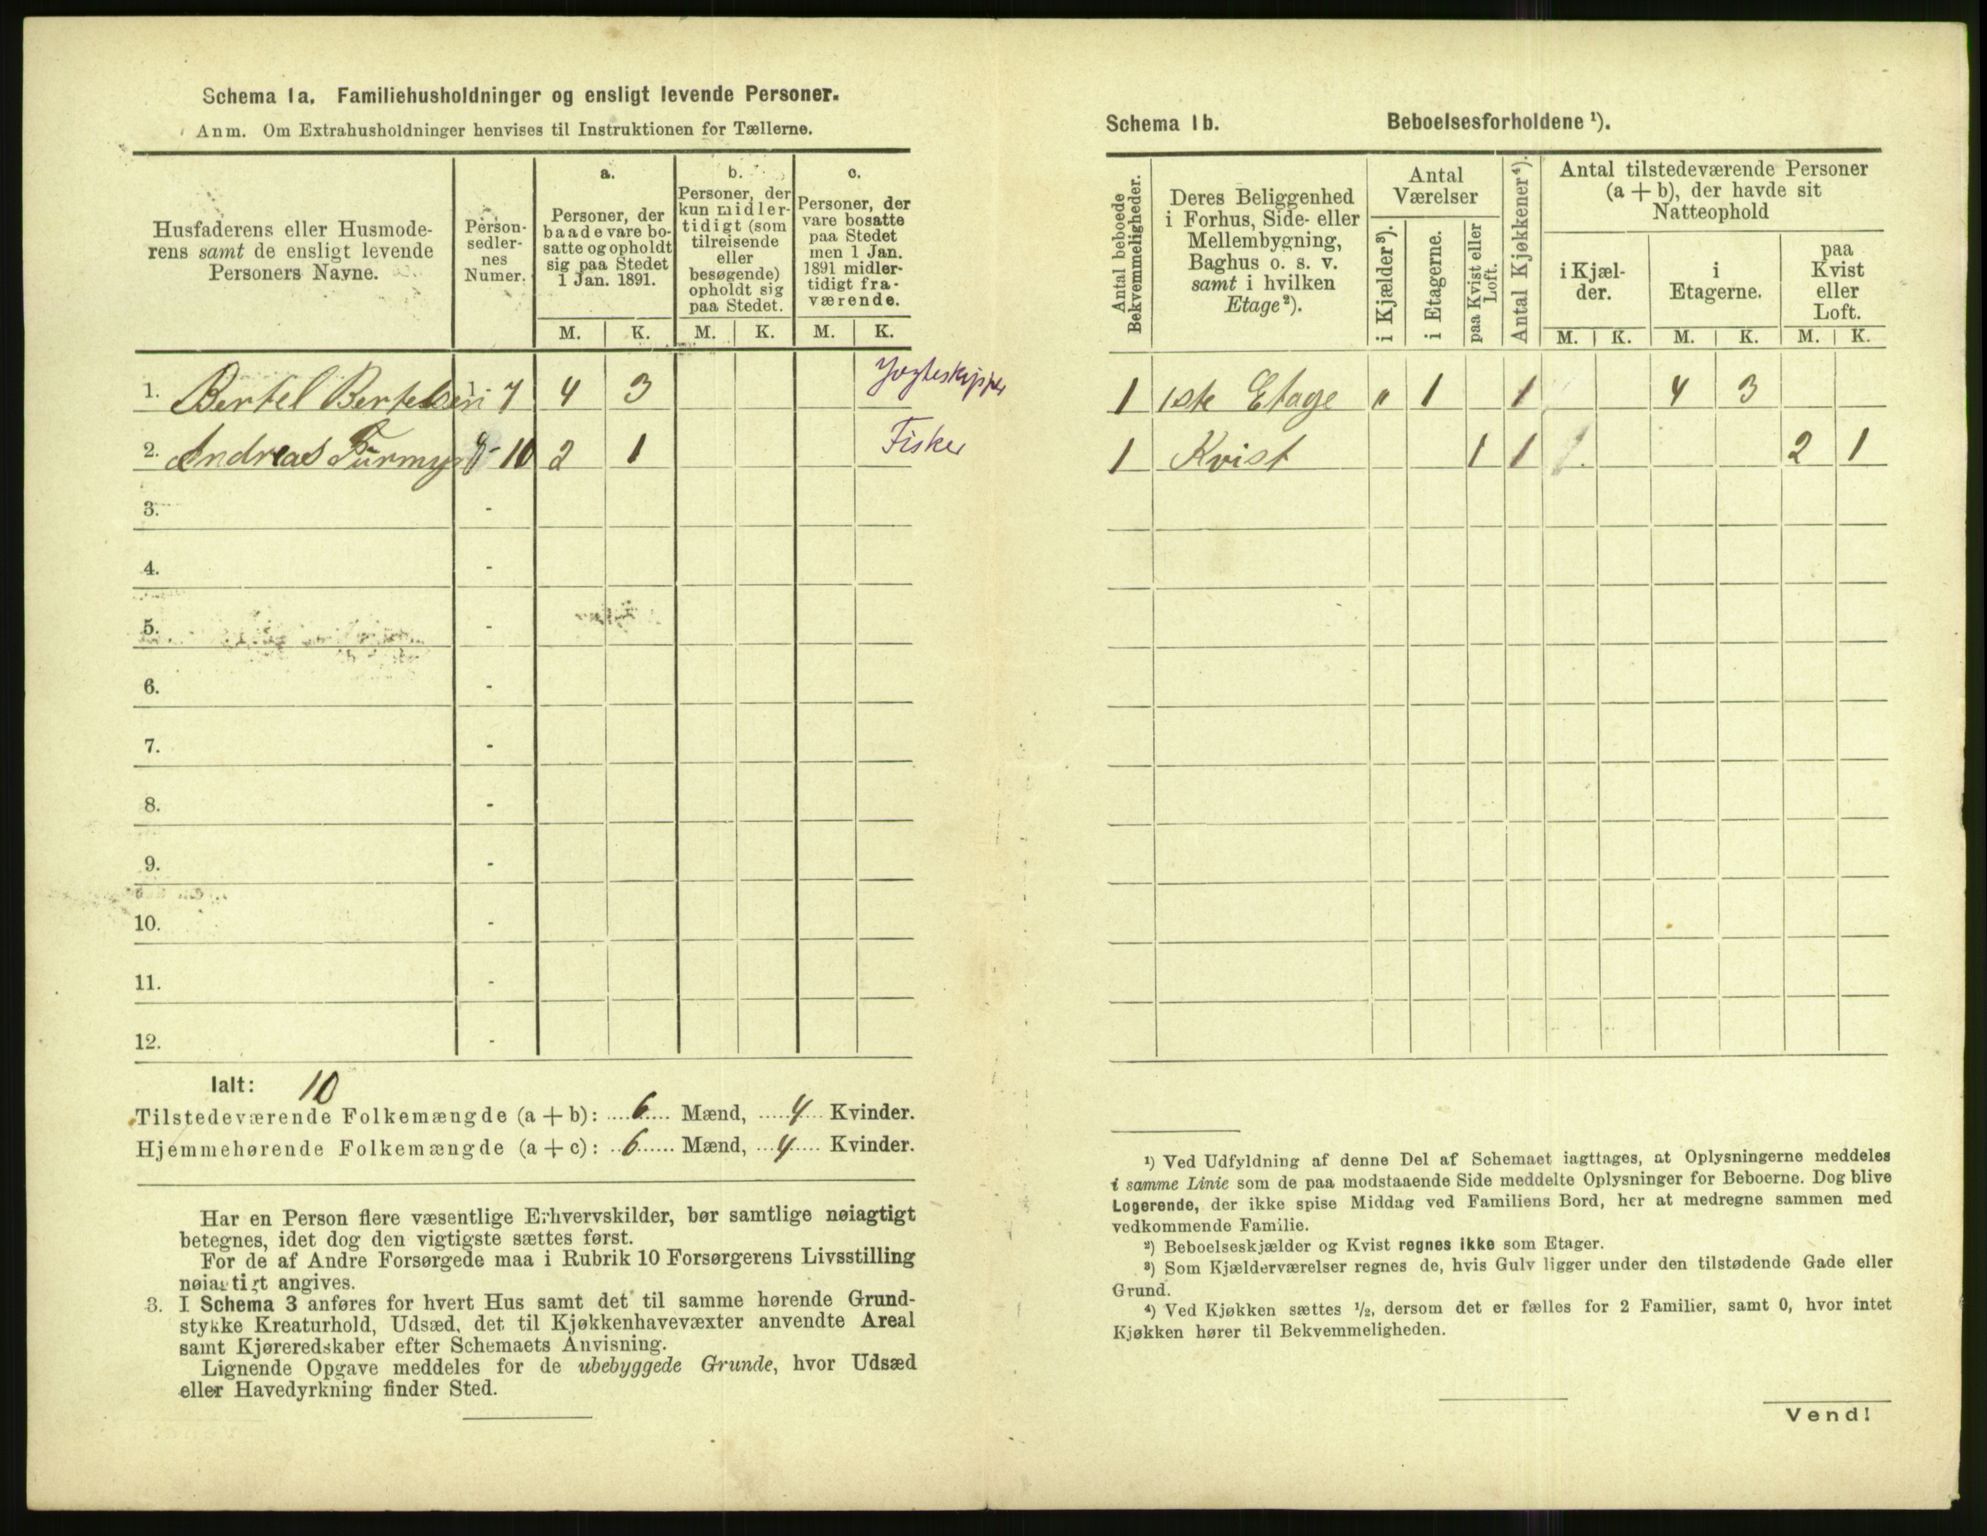 Schema 1a. Familiehusholdninger og ensligt levende Personer.
Anm. Om Extrahusholdninger henvises til Instruktionen for Tællerne.
Husfaderens eller Husmode-
rens samt de ensligt levende
Personers Navne.
Person-
sedler-
nes
Numer.
a.
Personer, der
baade vare bo-
satte og opholdt
sig paa Stedet
1 Jan. 1891.
b.
Personer, der
kun midler-
tidigt (som
tilreisende
eller
besøgende)
opholdt sig
paa Stedet.
c.
Personer, der
vare bosatte
paa Stedet
men 1 Jan.
1891 midler-
tidigt fra-
værende.
M. K. M. K. M. K.
1. Bertel Bertelsen 1-7 4 3 Jagteskipper
2. Andreas 8-10 2 1 Fisker
3. -
4. -
5. -
6. -
7. -
8. -
9. -
10. -
11. -
12. -
Ialt: 10
Tilstedeværende Folkemængde (a + b): 6 Mænd, 4 Kvinder.
Hjemmehørende Folkemængde (a + c): 6 Mænd, 4 Kvinder.
Har en Person flere væsentlige Erhvervskilder, bør samtlige nøiagtigt
betegnes, idet dog den vigtigste sættes først.
For de af Andre Forsørgede maa i Rubrik 10 Forsørgerens Livsstilling
nøiagtigt angives.
3. I Schema 3 anføres for hvert Hus samt det til samme hørende Grund-
stykke Kreaturhold, Udsæd, det til Kjøkkenhavevæxter anvendte Areal
samt Kjøreredskaber efter Schemaets Anvisning.
Lignende Opgave meddeles for de ubebyggede Grunde, hvor Udsæd
eller Havedyrkning finder Sted.
Schema 1b. Beboelsesforholdene ¹).
Antal beboede
Bekvemmeligheder.
Deres Beliggenhed
i Forhus, Side- eller
Mellembygning,
Baghus o. s. v.
samt i hvilken
Etage²).
Antal
Værelser
i Kjælder³).
i Etagerne.
paa Kvist eller
Loft.
Antal Kjøkkener⁴).
Antal tilstedeværende Personer
(a + b), der havde sit
Natteophold
i Kjæl-
der.
i
Etagerne.
paa
Kvist
eller
Loft.
M. K. M. K. M. K.
1 1ste Etage " 1 1 4 3
1 Kvist 1 1 2 1
¹) Ved Udfyldning af denne Del af Schemaet iagttages, at Oplysningerne meddeles
i samme Linie som de paa modstaaende Side meddelte Oplysninger for Beboerne. Dog blive
Logerende, der ikke spise Middag ved Familiens Bord, her at medregne sammen med
vedkommende Familie.
²) Beboelseskjælder og Kvist regnes ikke som Etager.
³) Som Kjælderværelser regnes de, hvis Gulv ligger under den tilstødende Gade eller
Grund.
⁴) Ved Kjøkken sættes ½, dersom det er fælles for 2 Familier, samt 0, hvor intet
Kjøkken hører til Bekvemmeligheden.
Vend!